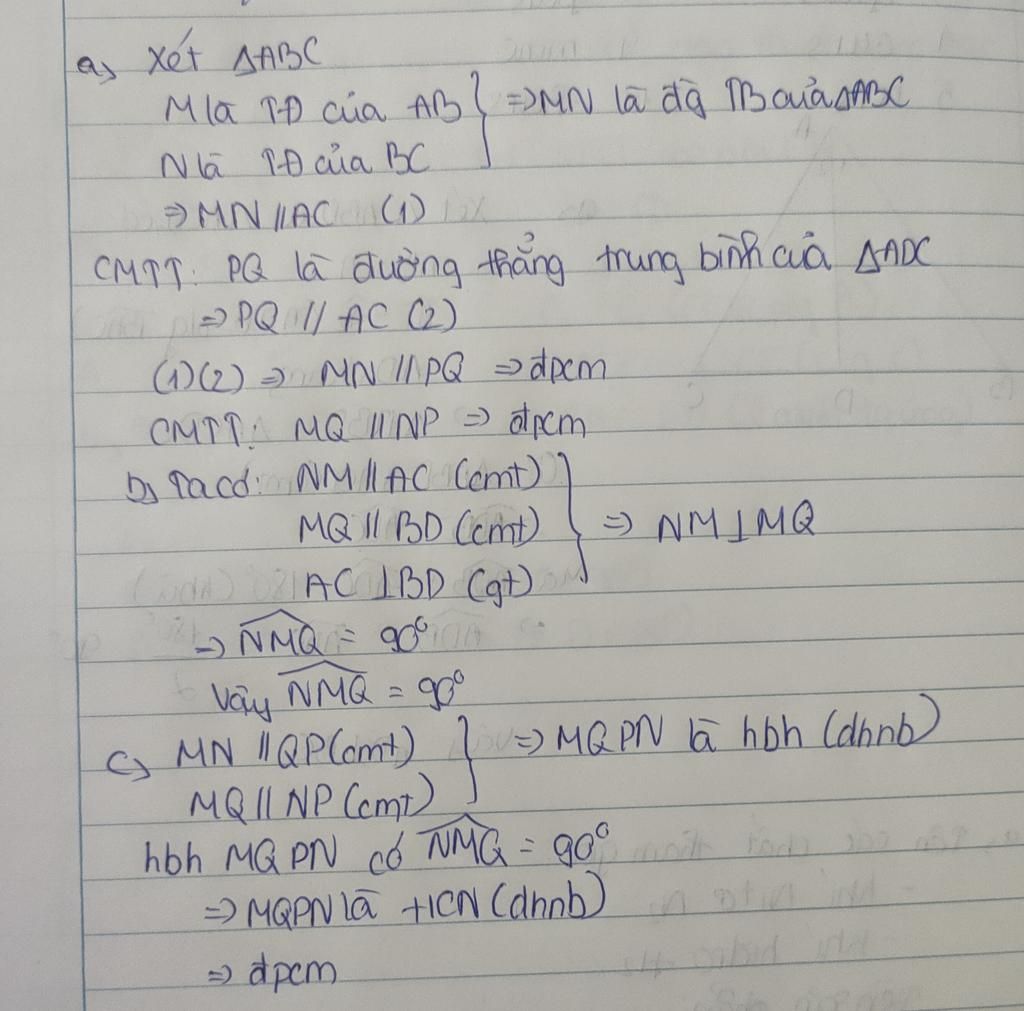 a, Xét ΔABC
M là TĐ của AB } ⇒ MN là đg TB của ΔABC
N là TĐ của BC
⇒ MN // AC (1)
CMTT: PQ là đường thẳng trung bình của ΔADC
⇒ PQ // AC (2)
(1)(2) ⇒ MN // PQ ⇒ đpcm
CMTT: MQ // NP ⇒ đpcm
b, Ta có: NM // AC (cmt)
MQ // BD (cmt) } ⇒ NM ⊥ MQ
AC ⊥ BD (gt)
⇒ \widehat{NMQ} = 90°
Vậy \widehat{NMQ} = 90°
c, MN // QP (cmt) } ⇒ MQPN là hbh (dhnb)
MQ // NP (cmt)
hbh MQPN có \widehat{NMQ} = 90°
⇒ MQPN là HCN (dhnb)
⇒ đpcm